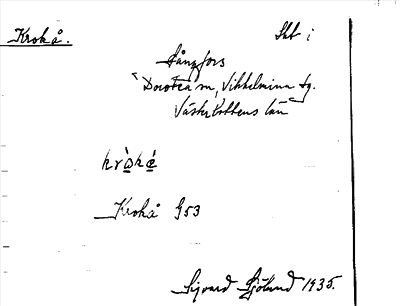 Krokå. Sbt i
Långfors
Dorotea sn, Vilhelmina tg.
Västerbottens län
kròké
Krokå 953
Sigvard Sjölund 1935.